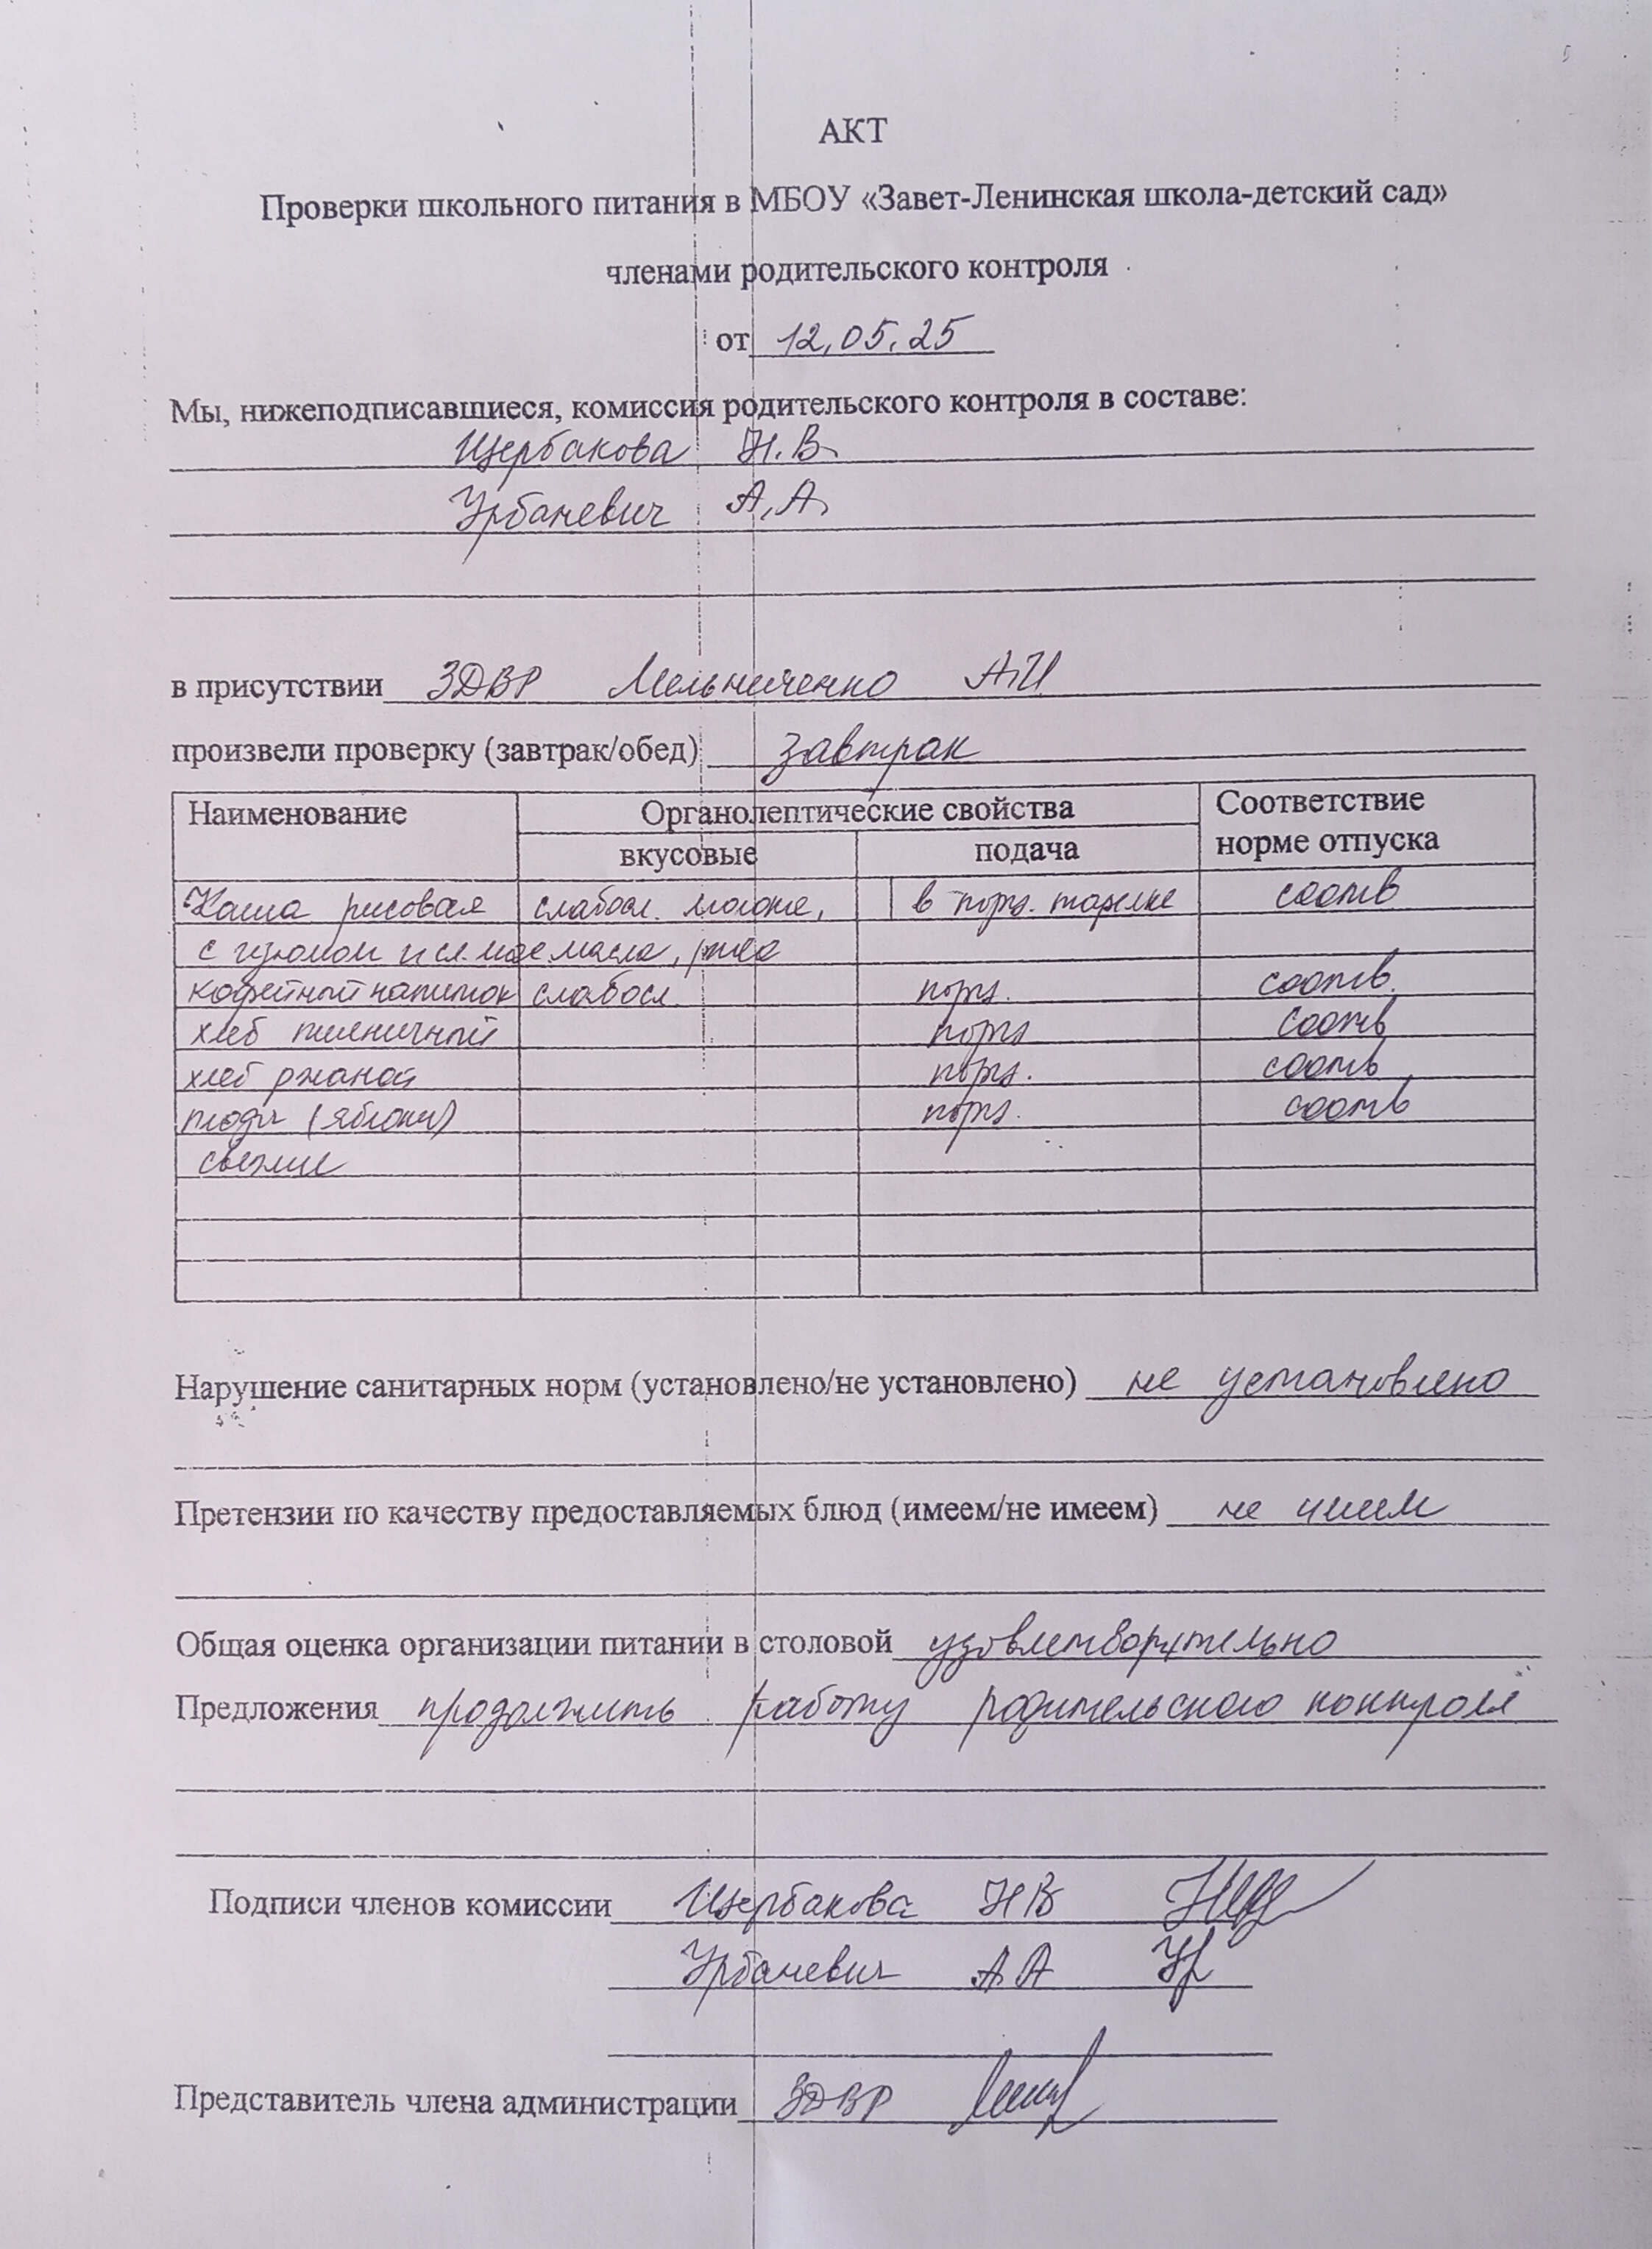 АКТ
Проверки школьного питания в МБОУ «Завет-Ленинская школа-детский сад»
членами родительского контроля
от 12.05.25
Мы, нижеподписавшиеся, комиссия родительского контроля в составе:
Щербакова Н.В.
Урбаневич А.А.
в присутствии ЗДВР Мельниченко А.И
произвели проверку (завтрак/обед) завтрак
Наименование Органолептические свойства Соответствие
норме отпуска
вкусовые подача
Каша рисовая слабосл. молоко, в порц. тарелке соотв
с изюмом и сл. мас масла, риса
кофейный напиток слабосл. порц. соотв.
хлеб пшеничный порц соотв
хлеб ржаной порц. соотв
плоды (яблоки) порц. соотв
свежие
Нарушение санитарных норм (установлено/не установлено) не установлено
Претензии по качеству предоставляемых блюд (имеем/не имеем) не имеем
Общая оценка организации питании в столовой удовлетворительно
Предложения продолжить работу родительского контроля
Подписи членов комиссии Щербакова НВ
Урбаневич АА Ур
Представитель члена администрации ЗДВР